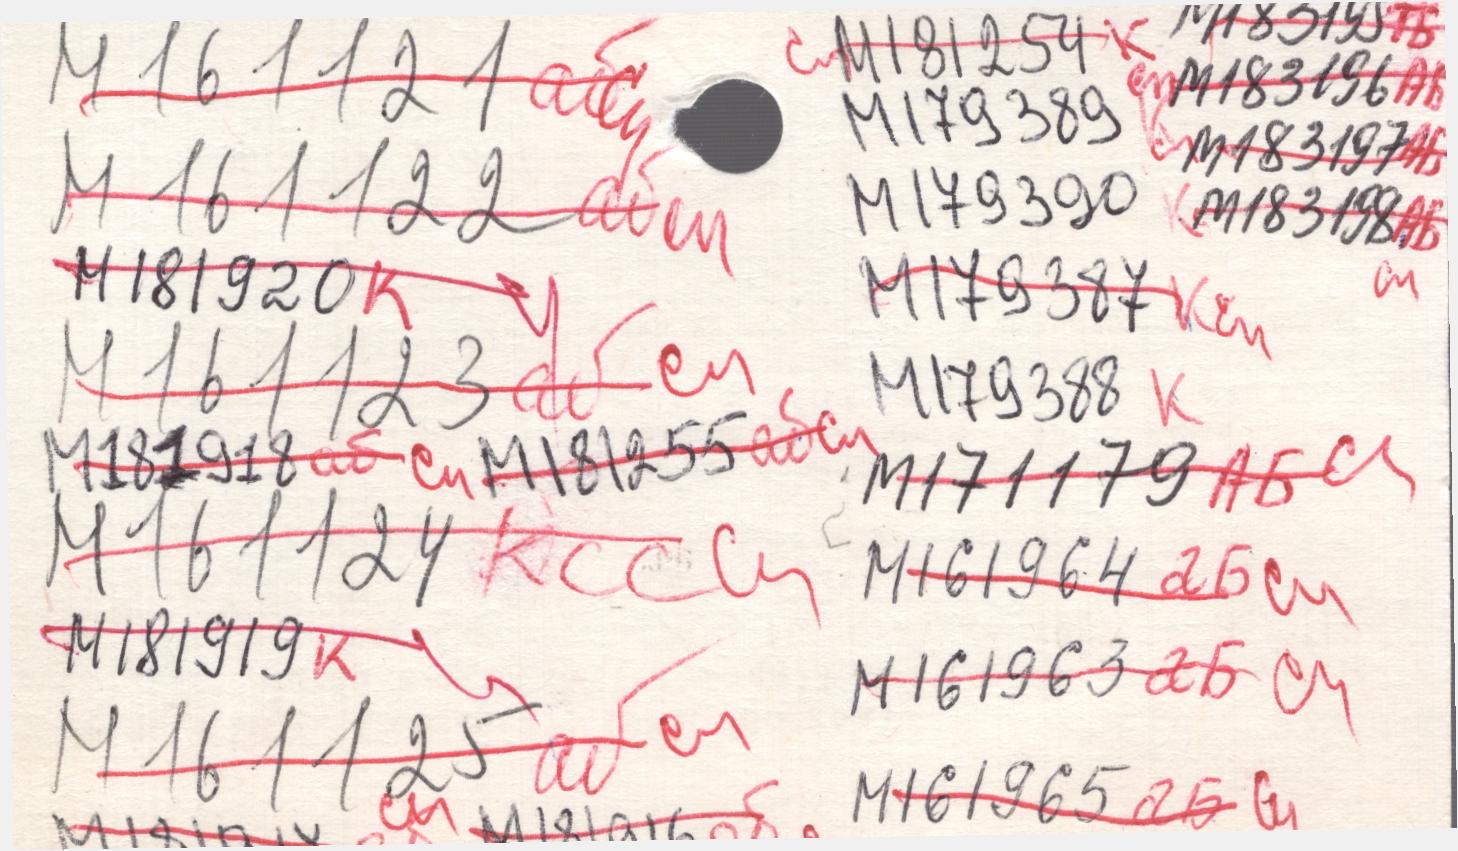 М 161121 аб сп
М 161122 аб сп
М181920 К
М 161123 аб сп
М181918 аб сп М181255 аб сп
М 161124 К ССС сп
М181919 К
М 161125 аб сп
сп
М181916 аб
сп М181254 К
М179389
М179390
М179387 К сп
М179388 К
М171179 АБ сп
М161964 аБ сп
М161963 аБ сп
М161965 аБ сп
М183195 АБ
сп М183196 АБ
К сп М183197 АБ
К М183198 АБ
сп